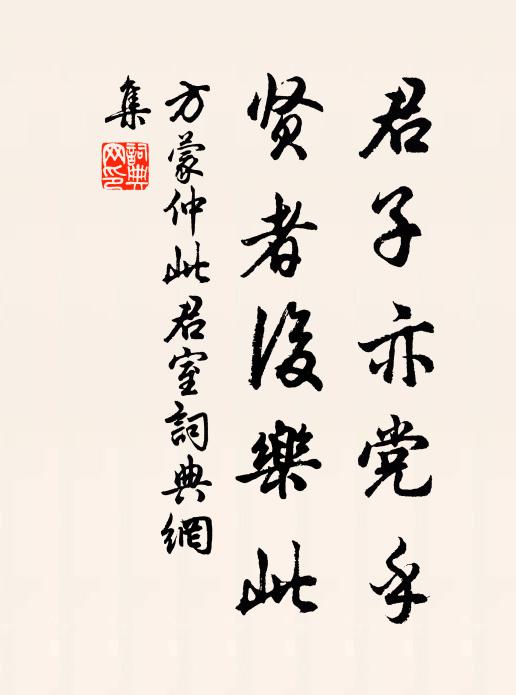 君子亦党乎
贤者后樂此
方蒙仲此君室詞典網
集
詞典
网印